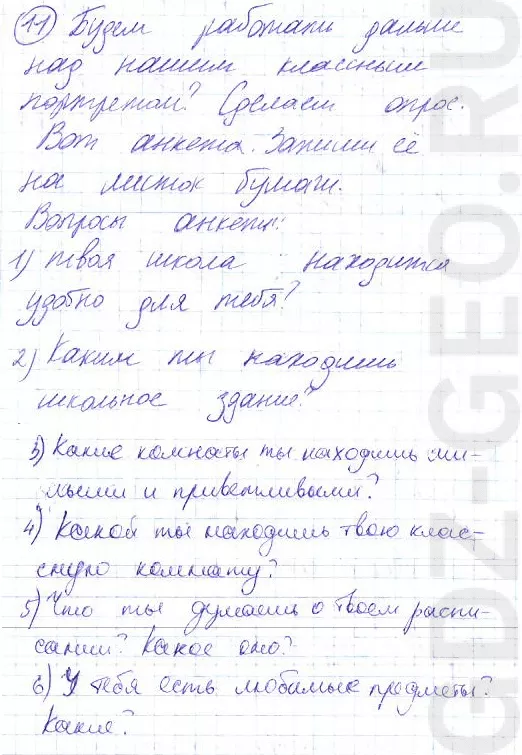 11 Будем работать дальше
над нашим классным
портретом? Сделаем опрос.
Вот анкета. Запиши её
на листок бумаги.
Вопросы анкеты:
1) твоя школа находится
удобно для тебя?
2) Каким ты находишь
школьное здание?
3) Какие комнаты ты находишь ми-
лыми и приветливыми?
4) Какой ты находишь твою клас-
сную комнату?
5) Что ты думаешь о твоем распи-
сании? Какое оно?
6) У тебя есть любимые предметы?
Какие?
GDZ-GEO.RU